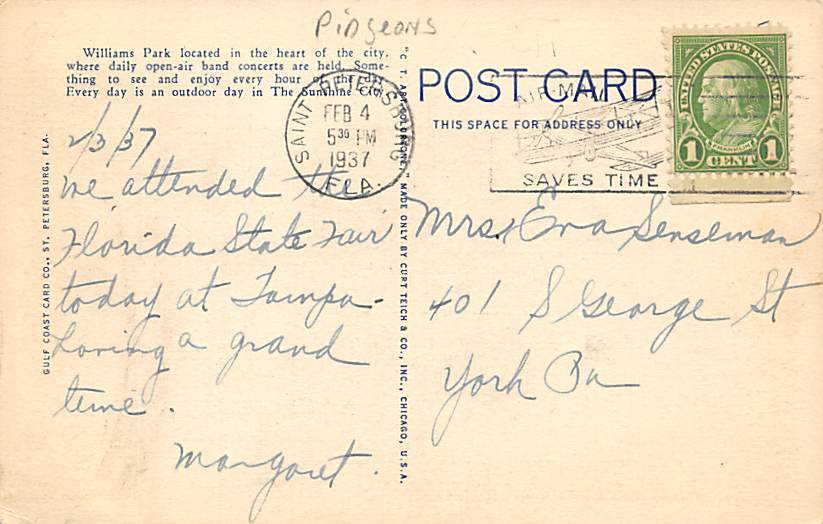 Pidgeons
Williams Park located in the heart of the city,
where daily open-air band concerts are held. Some-
thing to see and enjoy every hour of the day.
Every day is an outdoor day in The Sunshine City.
2/3/37
We attended the
Florida State Fair
today at Tampa-
Having a grand
time.
Margaret.
GULF COAST CARD CO., ST. PETERSBURG, FLA.
"C. T. ART-COLORTONE" MADE ONLY BY CURT TEICH & CO., INC., CHICAGO, U.S.A.
POST CARD
THIS SPACE FOR ADDRESS ONLY
SAINT PETERSBURG
FEB 4
5 30 PM
1937
FLA.
AIR MAIL
SAVES TIME
UNITED STATES POSTAGE
FRANKLIN
1 CENT 1
Mrs. Eva Senseman
401 S George St
York Pa